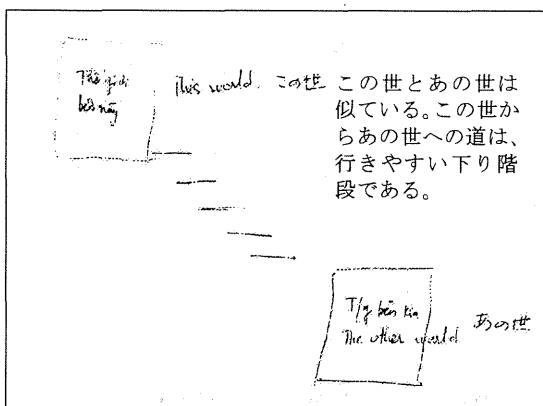 Thế giới
bên này
This world
この世
この世とあの世は
似ている。この世か
らあの世への道は、
行きやすい下り階
段である。
T/g bên kia
The other world
あの世